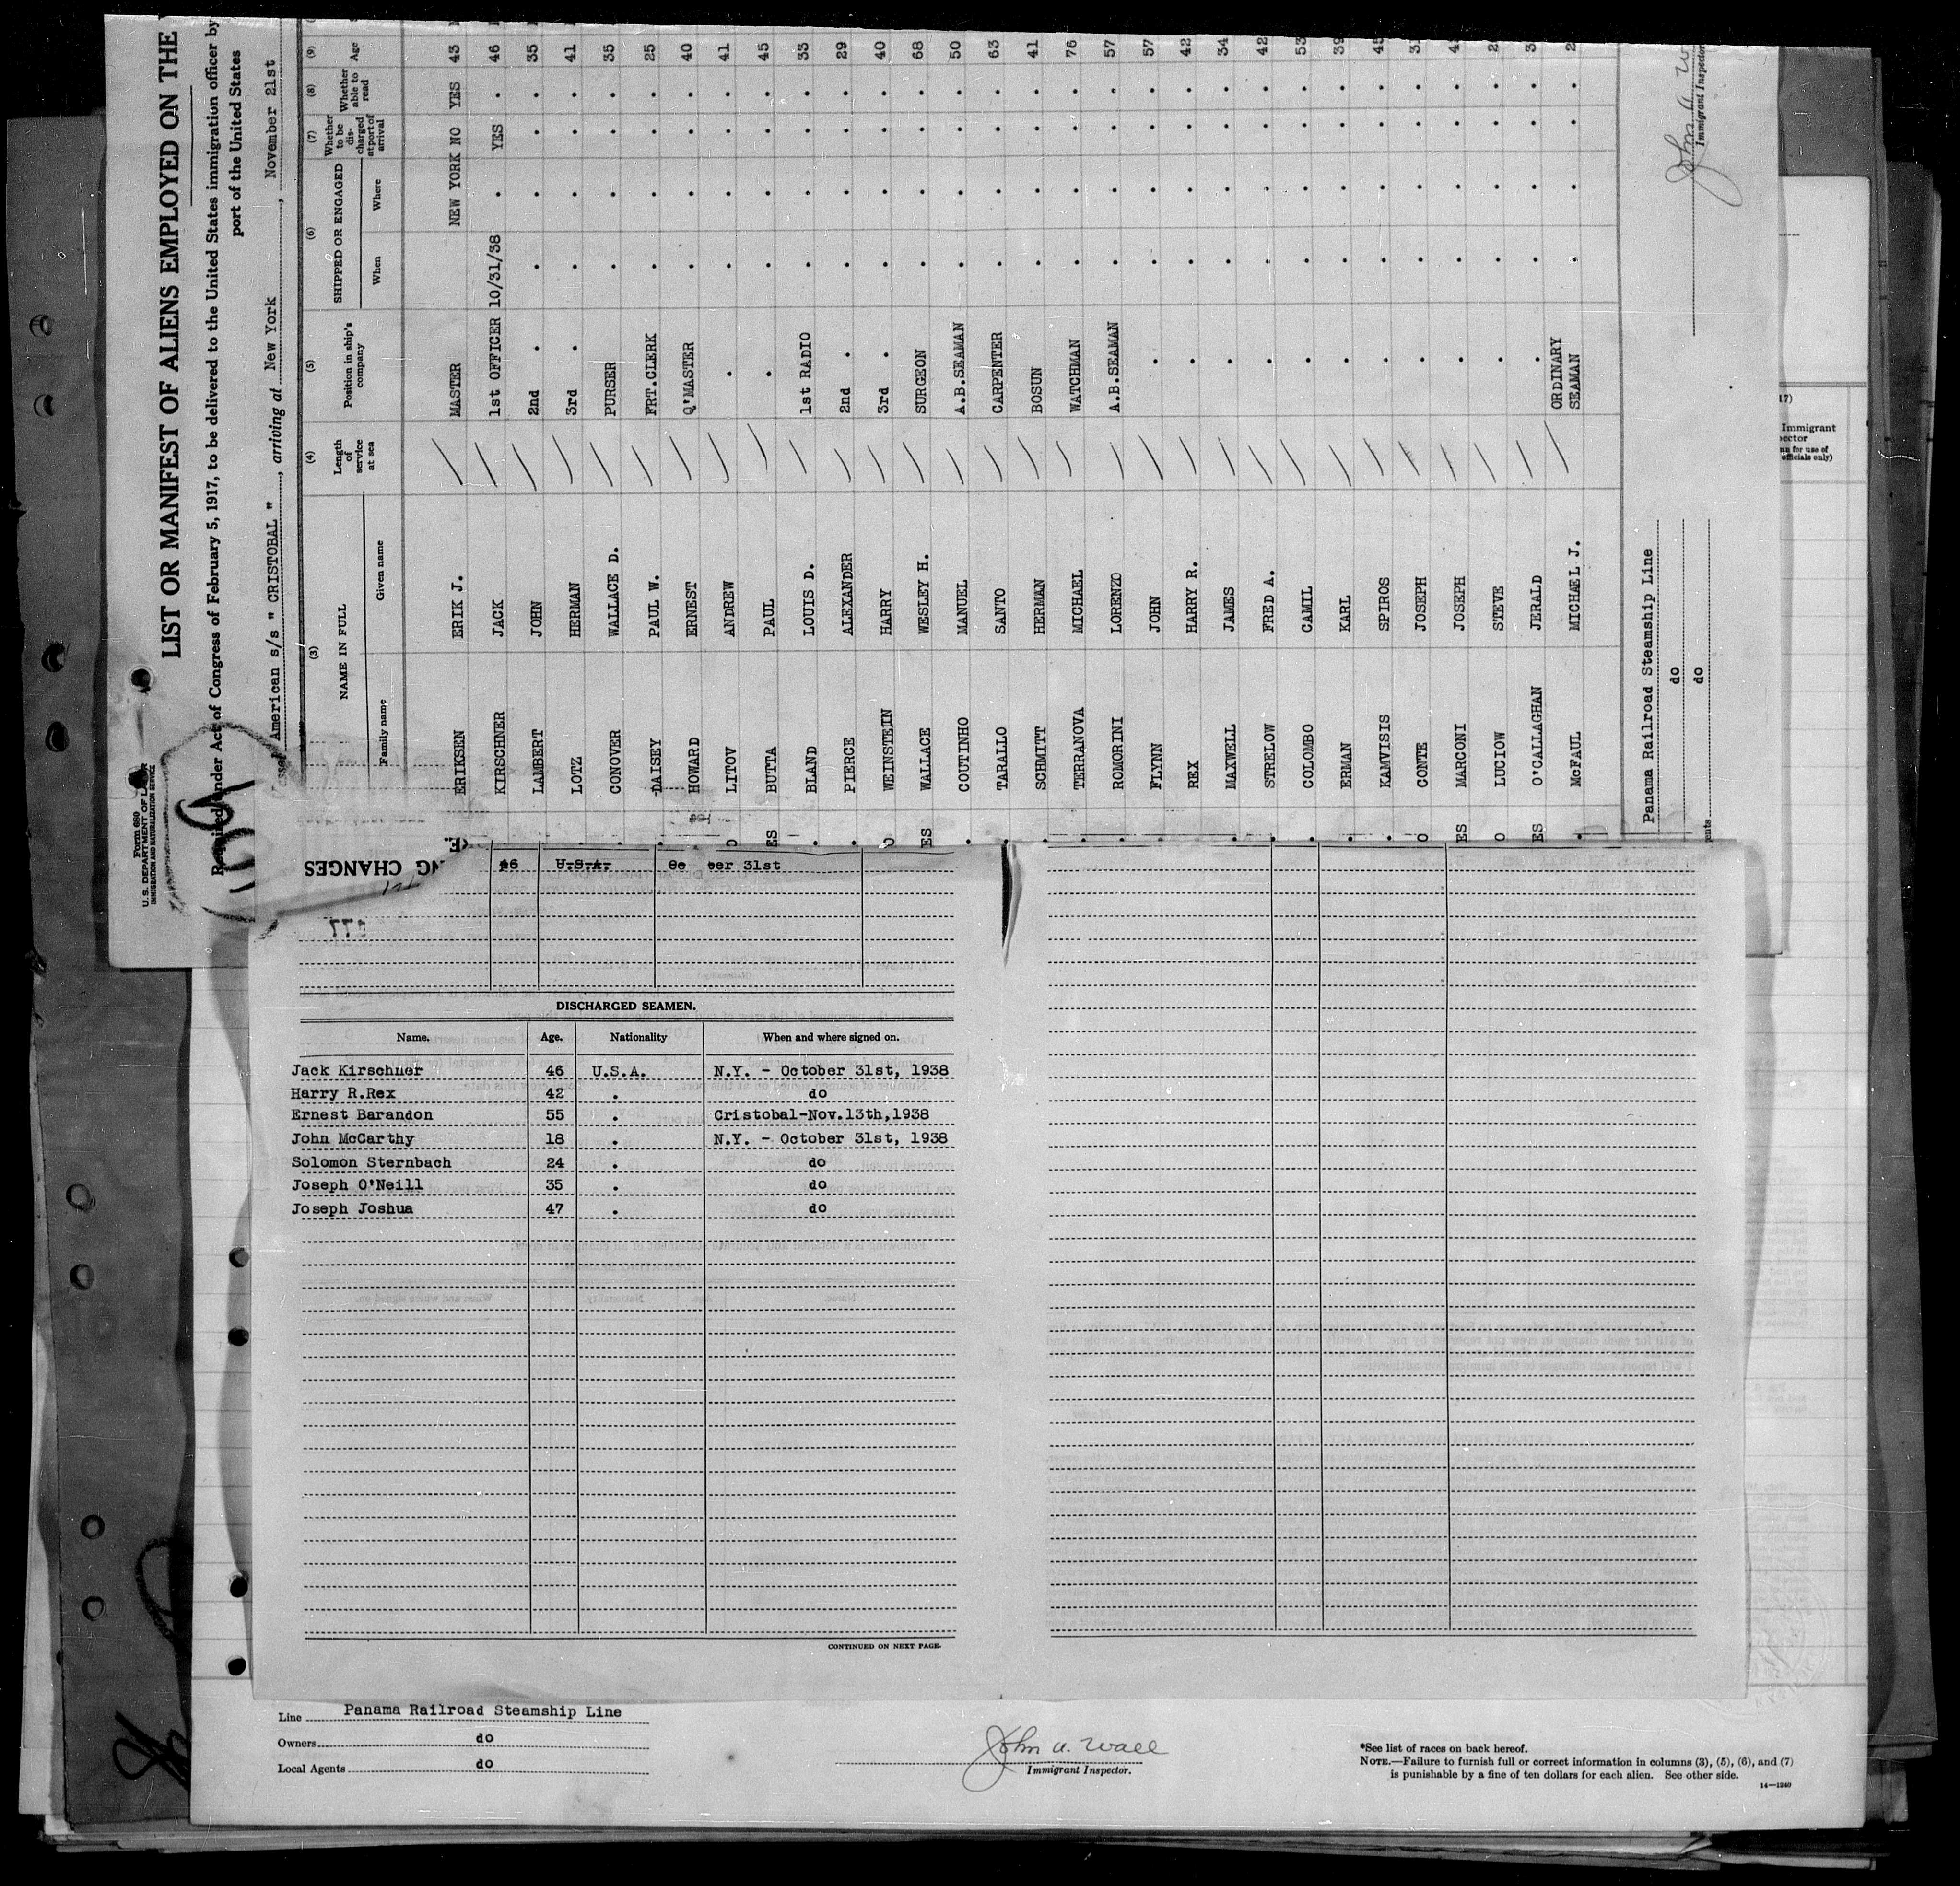 Form 680
U. S. DEPARTMENT OF LABOR
IMMIGRATION AND NATURALIZATION SERVICE
LIST OR MANIFEST OF ALIENS EMPLOYED ON THE
Required under Act of Congress of February 5, 1917, to be delivered to the United States immigration officer by
port of the United States
American s/s " CRISTOBAL ", arriving at New York, November 21st
(3) (4) (5) (6) (7) (8) (9)
NAME IN FULL Length of service at sea Position in ship's company SHIPPED OR ENGAGED Whether to be discharged at port of arrival Whether able to read Age
Family name Given name When Where
ERIKSEN ERIK J. MASTER NEW YORK NO YES 43
KIRSCHNER JACK 1st OFFICER 10/31/38 . YES . 46
LAMBERT JOHN 2nd . . . . . 35
LOTZ HERMAN 3rd . . . . . 41
CONOVER WALLACE D. PURSER . . . . 35
DAISEY PAUL W. FRT.CLERK . . . . 25
HOWARD ERNEST Q'MASTER . . . . 40
LITOV ANDREW . . . . . 41
BUTTA PAUL . . . . . 45
BLAND LOUIS D. 1st RADIO . . . . 33
PIERCE ALEXANDER 2nd . . . . . 29
WEINSTEIN HARRY 3rd . . . . . 40
WALLACE WESLEY H. SURGEON . . . . 68
COUTINHO MANUEL A.B.SEAMAN . . . . 50
TARALLO SANTO CARPENTER . . . . 63
SCHMITT HERMAN BOSUN . . . . 41
TERRANOVA MICHAEL WATCHMAN . . . . 76
ROMORINI LORENZO A.B.SEAMAN . . . . 57
FLYNN JOHN . . . . . 57
REX HARRY R. . . . . . 42
MAXWELL JAMES . . . . . 34
STRELOW FRED A. . . . . . 42
COLOMBO CAMIL . . . . . 53
ERMAN KARL . . . . . 39
KAMVISIS SPIROS . . . . .
CONTE JOSEPH . . . . .
MARCONI JOSEPH . . . . .
LUCIOW STEVE . . . . .
O'CALLAGHAN JERALD . . . . .
McFAUL MICHAEL J. ORDINARY SEAMAN . . . .
Panama Railroad Steamship Line
do
do
John A. W
Immigrant Inspector
Immigrant
officials only)
NG CHANGES
46 U.S.A. 31st
DISCHARGED SEAMEN.
Name. Age. Nationality When and where signed on.
Jack Kirschner 46 U.S.A. N.Y. - October 31st, 1938
Harry R.Rex 42 . do
Ernest Barandon 55 . Cristobal-Nov.13th,1938
John McCarthy 18 . N.Y. - October 31st, 1938
Solomon Sternbach 24 . do
Joseph O'Neill 35 . do
Joseph Joshua 47 . do
CONTINUED ON NEXT PAGE.
Line Panama Railroad Steamship Line
Owners do
Local Agents do
John A. Wall
Immigrant Inspector.
*See list of races on back hereof.
NOTE.—Failure to furnish full or correct information in columns (3), (5), (6), and (7)
is punishable by a fine of ten dollars for each alien. See other side.
14—1240